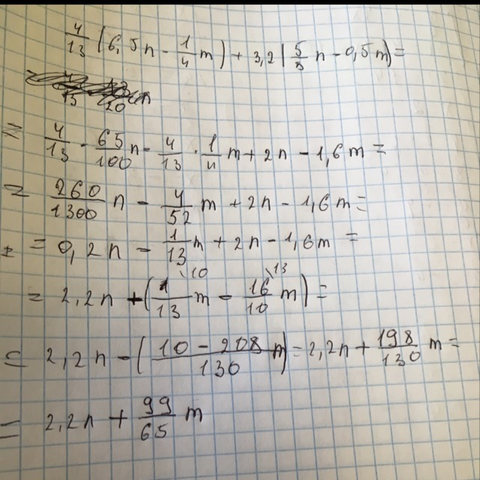 4/13 (6,5n - 1/4 m) + 3,2 (5/8 n - 0,5m) =
= 4/13 · 65/100 n - 4/13 · 1/4 m + 2n - 1,6m =
= 260/1300 n - 4/52 m + 2n - 1,6m =
= 0,2n - 1/13 m + 2n - 1,6m =
= 2,2n + (1/13 \10 m - 16/10 \13 m) =
= 2,2n - (10 - 208/130 m) = 2,2n + 198/130 m =
= 2,2n + 99/65 m